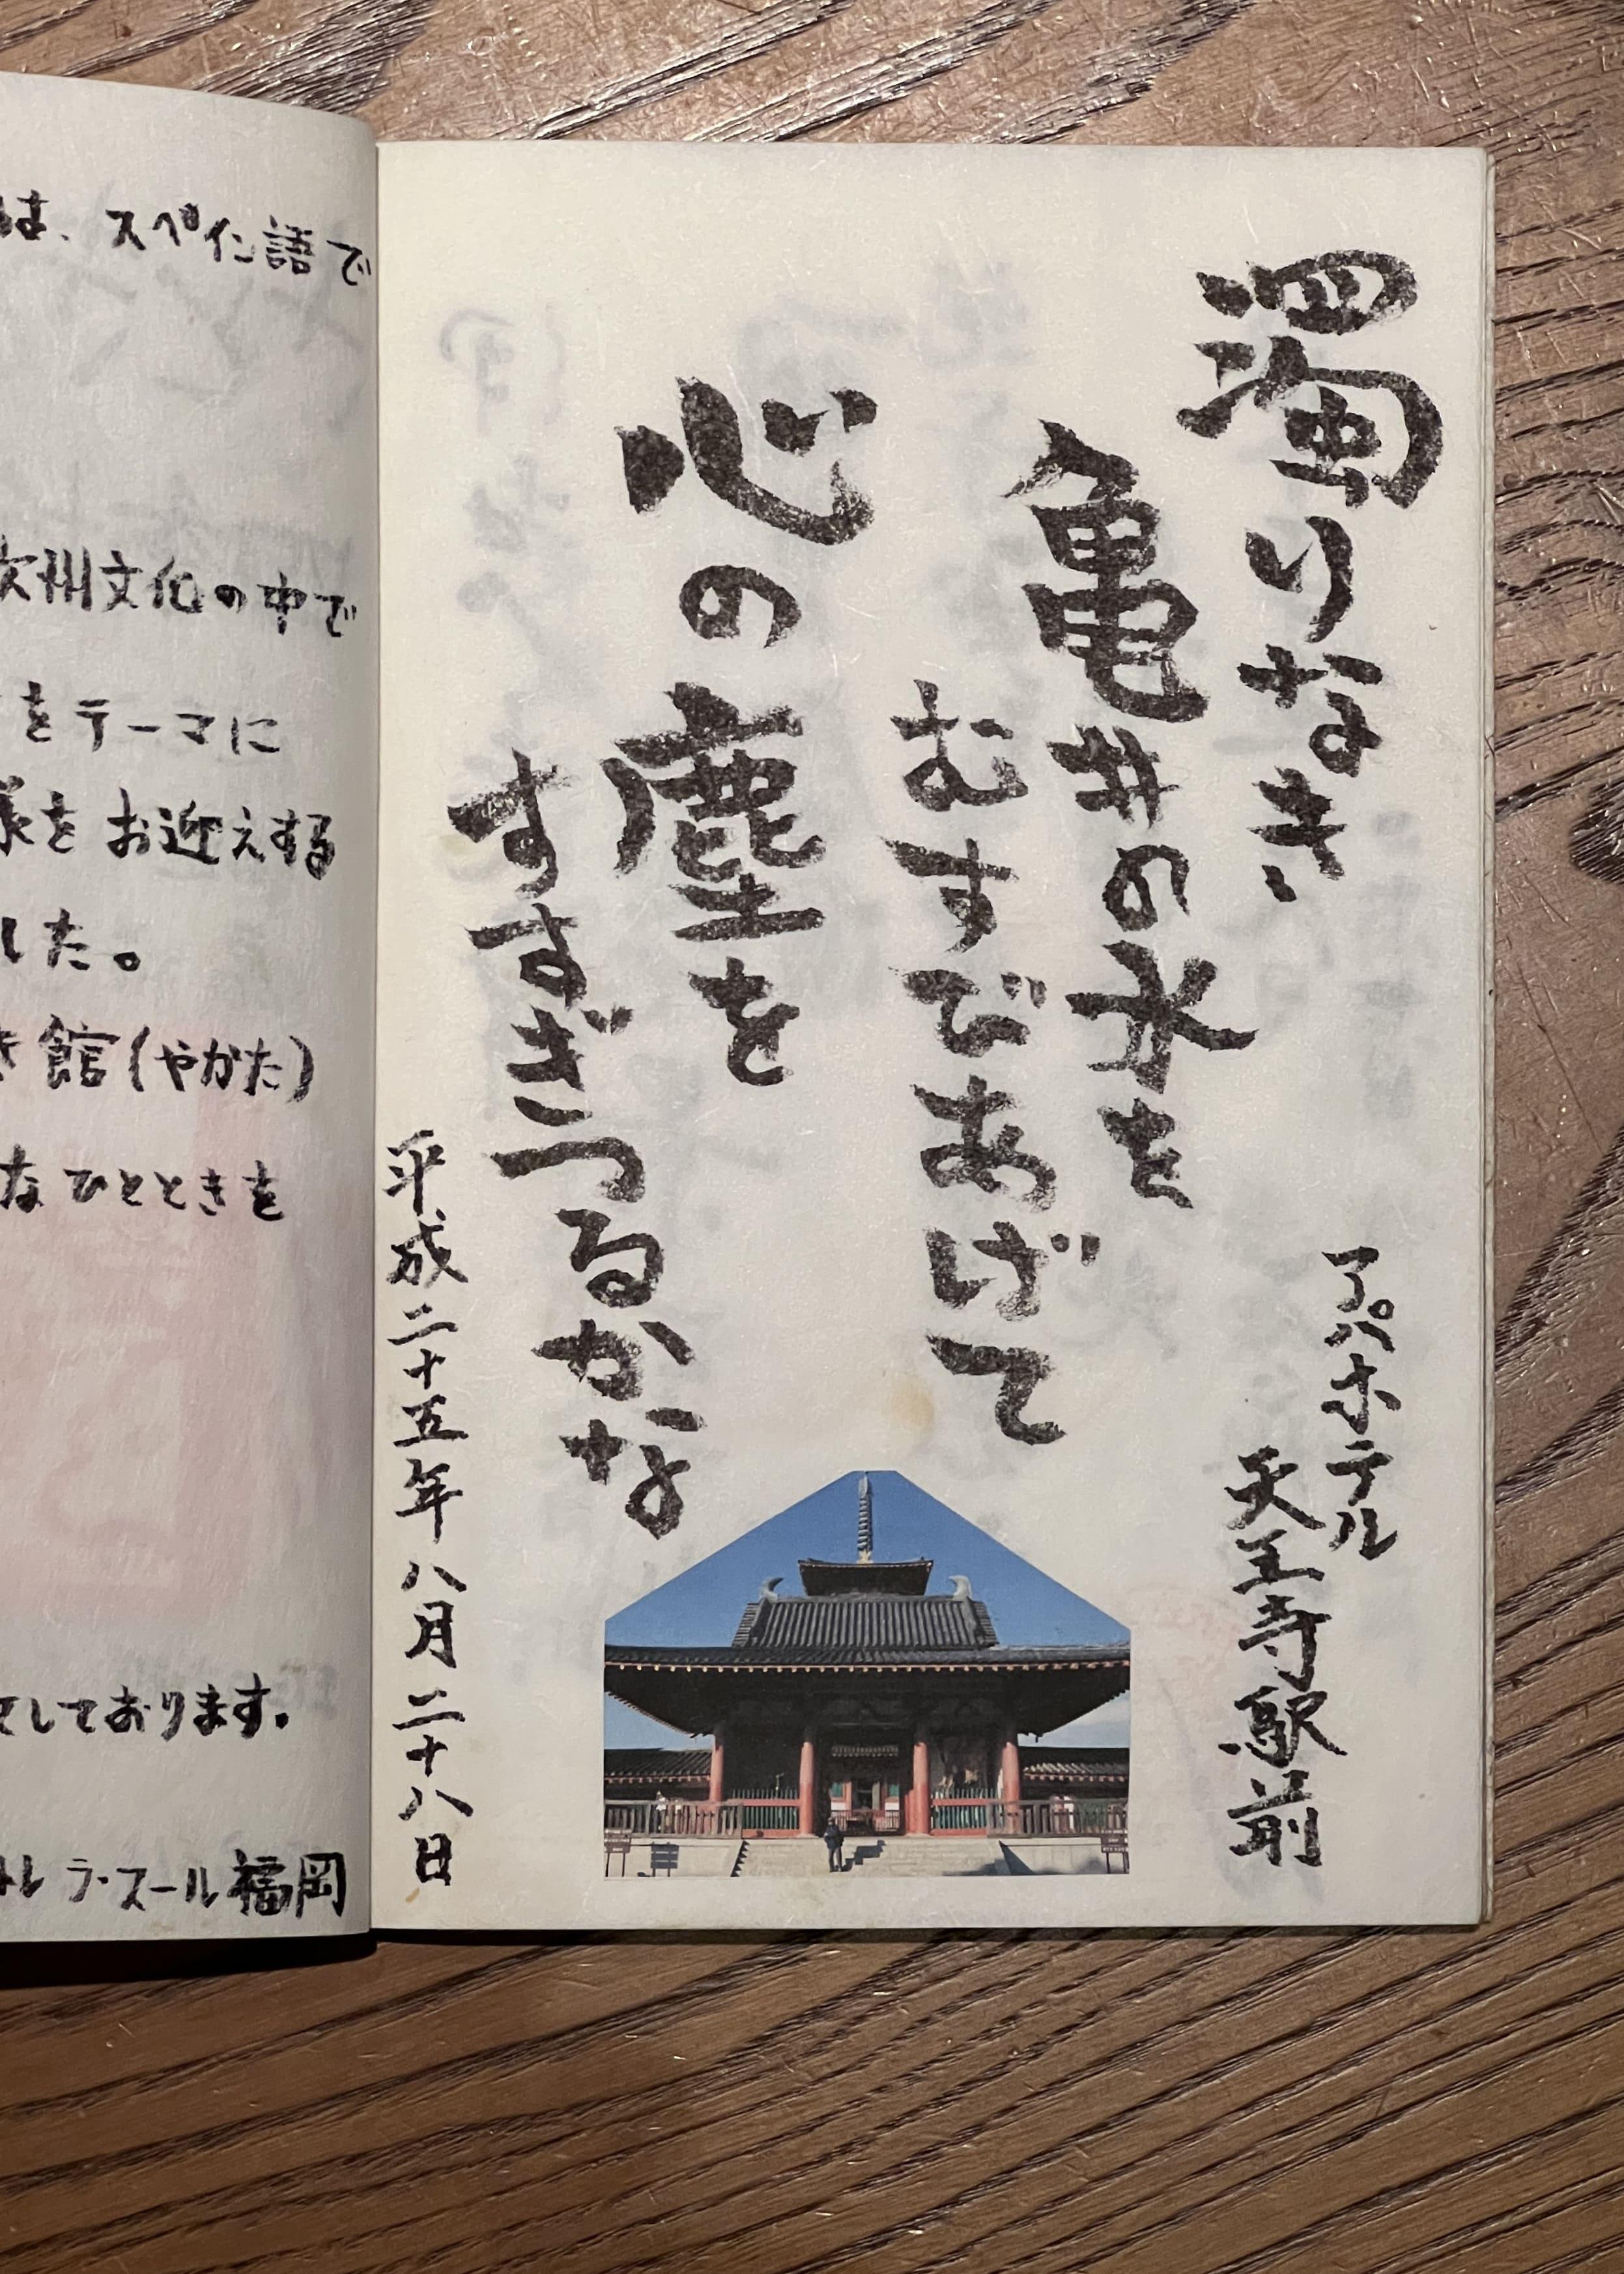 濁りなき、
亀井の水を
むすびあげて
心の塵を
すすぎつるかな
アパホテル
天王寺駅前
平成二十五年八月二十八日
は、スペイン語で
欧州文化の中で
をテーマに
様をお迎えする
した。
館(やかた)
なひとときを
しております。
ラ・スール福岡